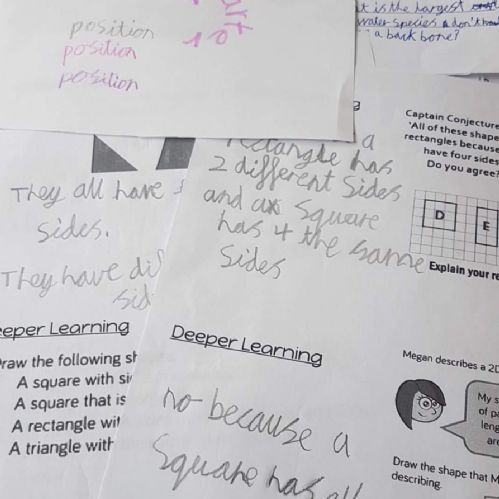 position
position
position
t is the largest
water species a don't
a back bone?
They all have
sides.
They have
a
rectangle has
2 different sides
and a square
has 4 the same
sides
Captain Conjecture
'All of these shape
rectangles because
have four sides
Do you agree?
D
E
Explain your re
eeper Learning
raw the following sh
A square with si
A square that is
A rectangle wit
A triangle with
Deeper Learning
no because a
square has all
Megan describes a 2D
My s
of pa
leng
are
Draw the shape that M
describing.